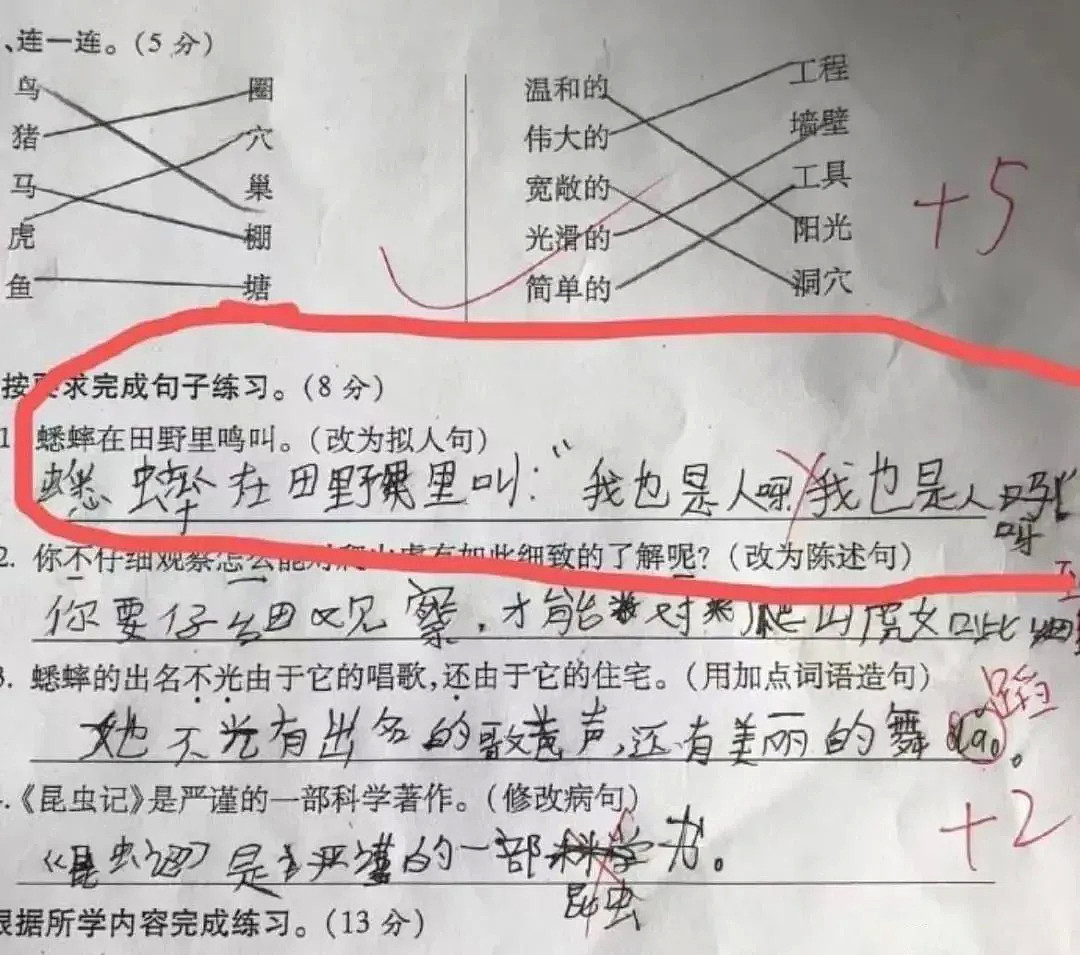 、连一连。(5分)
鸟 圈 温和的 工程
猪 穴 伟大的 墙壁
马 巢 宽敞的 工具
虎 棚 光滑的 阳光
鱼 塘 简单的 洞穴
+5
按要求完成句子练习。(8分)
1 蟋蟀在田野里鸣叫。(改为拟人句)
蟋蟀在田野里叫:“我也是人呀我也是人
呀
2. 你不仔细观察怎么能对爬山虎有如此细致的了解呢?(改为陈述句)
你要仔细观察,才能对爬山虎如此细
3. 蟋蟀的出名不光由于它的唱歌,还由于它的住宅。(用加点词语造句)
她不光有出名的歌声,还有美丽的舞dao。
蹈
+2
.《昆虫记》是严谨的一部科学著作。(修改病句)
《昆虫记》是严谨的一部
昆虫
根据所学内容完成练习。(13分)